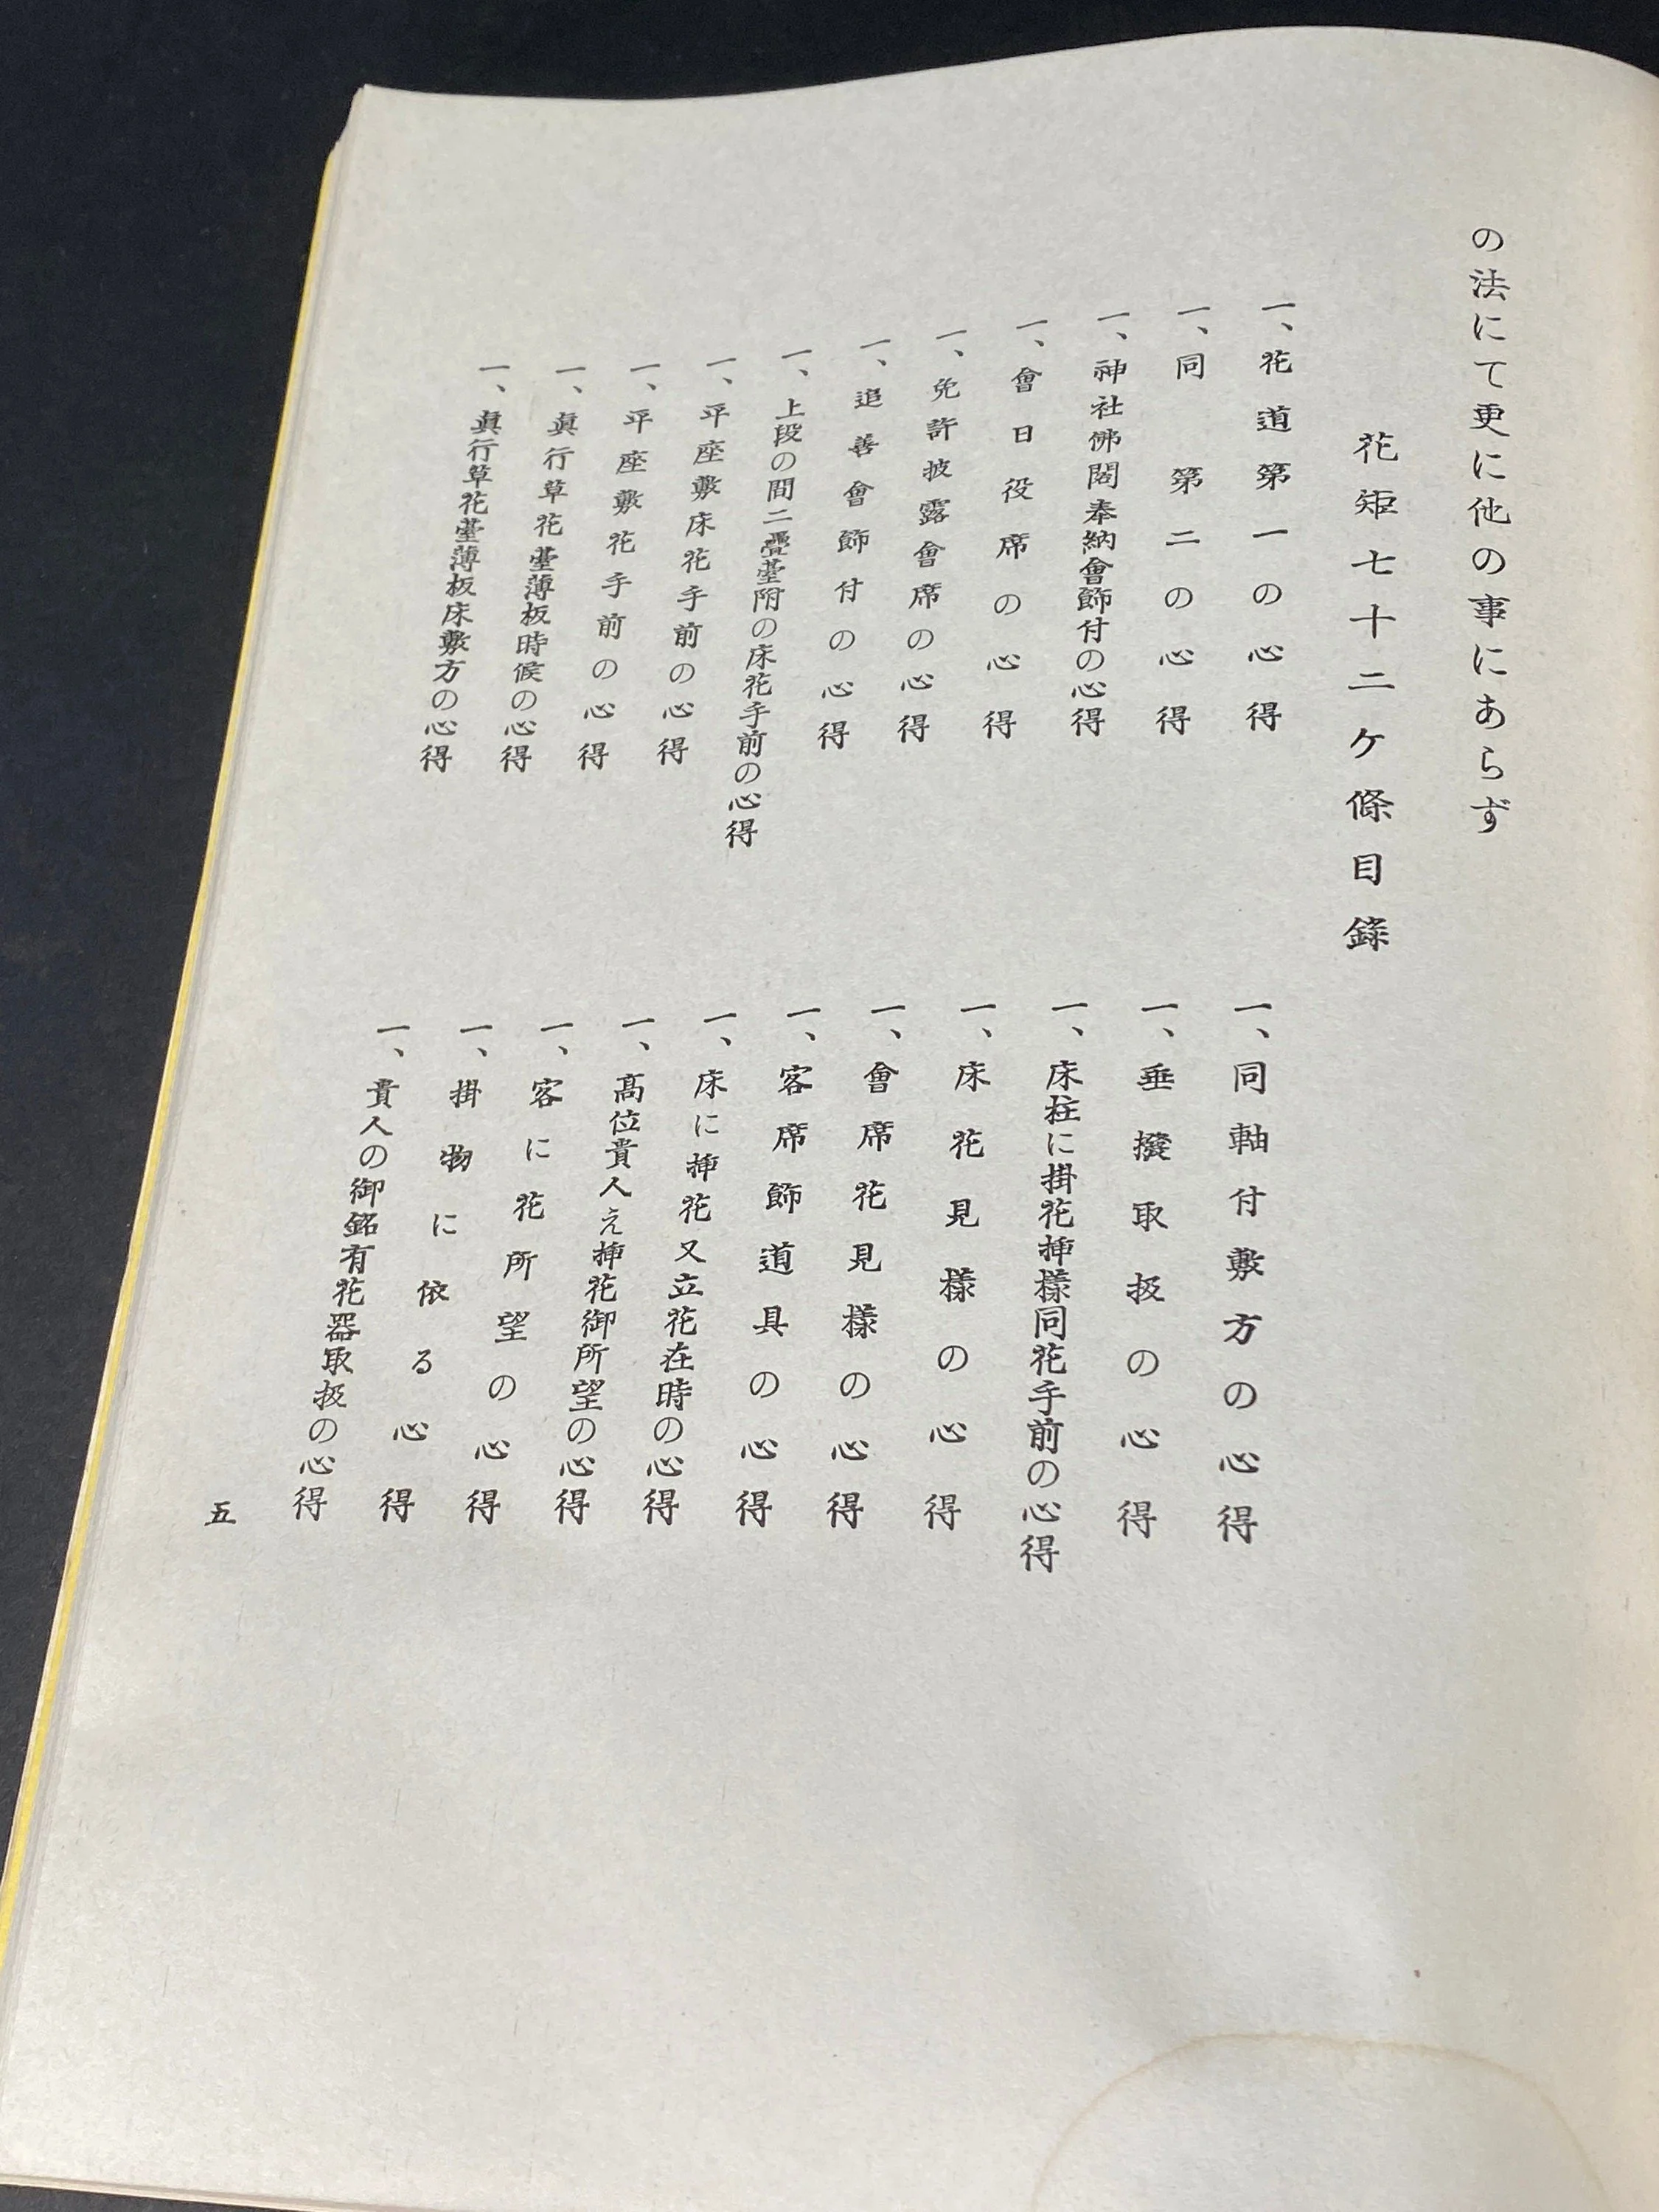 の法にて更に他の事にあらず
花矩七十二ケ條目錄
一、花道第一の心得
一、同第二の心得
一、神社佛閣奉納會飾付の心得
一、會日役席の心得
一、免許披露會席の心得
一、追善會飾付の心得
一、上段の間二疊臺附の床花手前の心得
一、平座敷床花手前の心得
一、平座敷花手前の心得
一、眞行草花臺薄板時候の心得
一、眞行草花臺薄板床敷方の心得
一、同軸付敷方の心得
一、垂撥取扱の心得
一、床柱に掛花挿様同花手前の心得
一、床花見様の心得
一、會席花見様の心得
一、客席飾道具の心得
一、床に挿花又立花在時の心得
一、高位貴人え挿花御所望の心得
一、客に花所望の心得
一、掛物に依る心得
一、貴人の御銘有花器取扱の心得
五